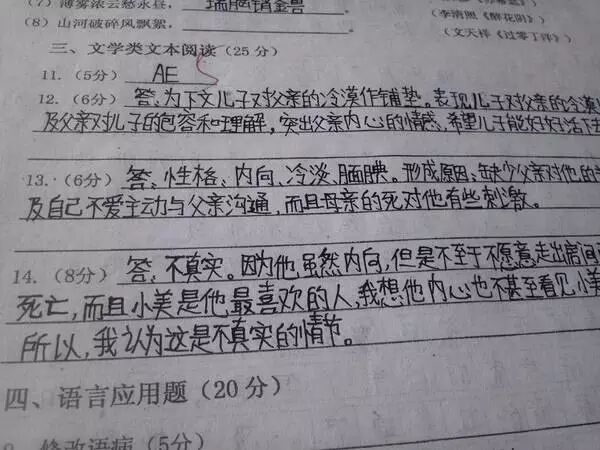 (7) 薄雾浓云愁永昼,瑞脑销金兽
(李清照《醉花阴》)
(8) 山河破碎风飘絮,
(文天祥《过零丁洋》)
三、文学类文本阅读(25分)
11. (5分) AE
12. (6分) 答:为下文儿子对父亲的冷漠作铺垫。表现儿子对父亲的冷漠
及父亲对儿子的包容和理解,突出父亲内心的情感,希望儿子能好好活下去
13. (6分) 答:性格:内向、冷淡、腼腆。形成原因:缺少父亲对他的
及自己不爱主动与父亲沟通,而且母亲的死对他有些刺激。
14. (8分) 答:不真实。因为他虽然内向,但是不至于不愿意走出房间
死亡,而且小美是他最喜欢的人,我想他内心也不甚至看见小美
所以,我认为这是不真实的情节。
四、语言应用题(20分)
修改语病(5分)